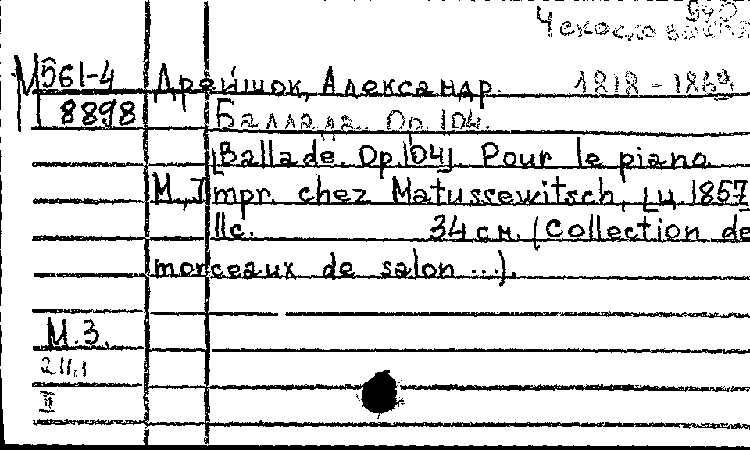 Чехословакия
М 561-4 Дрейшок, Александр. 1818 - 1869
8898 Баллада. Op. 104.
[Ballade. Op. 104]. Pour le piano.
М., Impr. chez Matuscewitsch, ц. 1857
11с. 34 см. (Collection de
morceaux de salon ...).
М.З.
II